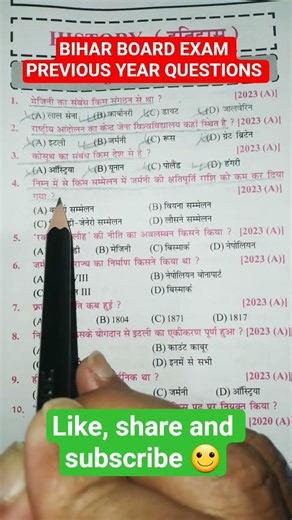 HISTORY ( इतिहास )
BIHAR BOARD EXAM
PREVIOUS YEAR QUESTIONS
1. मेजिनी का संबंध किस संगठन से था ? [2023 (A)]
(A) लाल सेना (B) कार्बोनरी (C) डायट (D) जालवेरिन
2. राष्ट्रीय आंदोलन का केन्द्र जेना विश्वविद्यालय कहाँ स्थित है ? [2023 (A)]
(A) इटली (B) जर्मनी (C) रूस (D) ग्रेट ब्रिटेन
3. कोसुथ का संबंध किस देश से है ? [2023 (A)]
(A) ऑस्ट्रिया (B) यूनान (C) पोलैंड (D) हंगरी
4. निम्न में से किस सम्मेलन में जर्मनी की क्षतिपूर्ति राशि को कम कर दिया
गया ? [2023 (A)]
(A) सम्मेलन (B) वियना सम्मेलन
(C) डी-जेनेरो सम्मेलन (D) लौसने सम्मेलन
5. लौह' की नीति का अवलम्बन किसने किया ? [2023 (A)]
(A) (B) मेजिनी (C) बिस्मार्क (D) नेपोलियन
6. राज्य का निर्माण किसने किया था ? [2023 (A)]
(A) VIII (B) नेपोलियन बोनापार्ट
(C) III (D) बिस्मार्क
7. कब हुई ? [2023 (A)]
(B) 1804 (C) 1871 (D) 1817
8. किसके योगदान से इटली का एकीकरण पूर्ण हुआ ? [2023 (A)]
(B) काउंट कावूर
(D) इनमें से सभी
9. था ? [2023 (A)]
(C) जर्मनी (D) ऑस्ट्रिया
10. पद पर नियुक्त किया ?
[2020 (A)]
Like, share and
subscribe 🙂